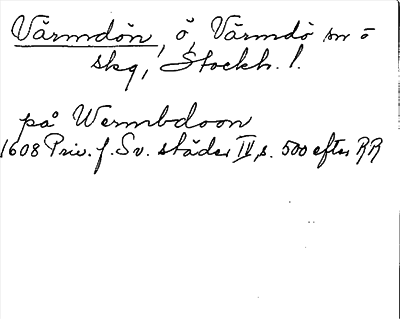 Värmdön, ö, Värmdö sn o
skg, Stockh. l.
på Wermbdoon
1608 Priv. f. Sv. städer IV, s. 500 efter RR